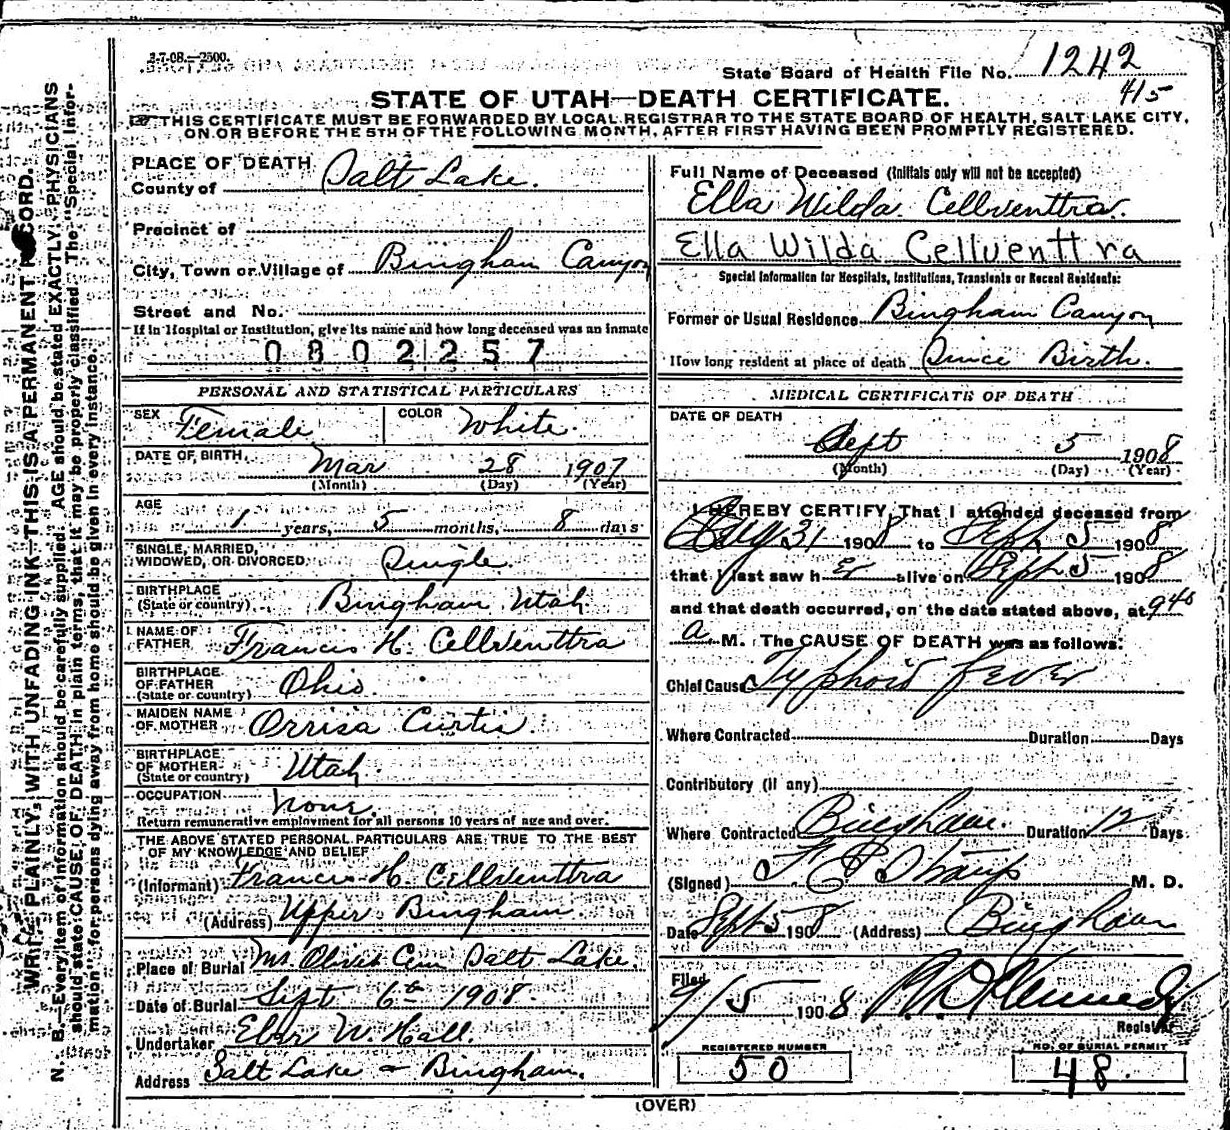 3-7-08.—2500.
State Board of Health File No. 1242
415
STATE OF UTAH—DEATH CERTIFICATE.
THIS CERTIFICATE MUST BE FORWARDED BY LOCAL REGISTRAR TO THE STATE BOARD OF HEALTH, SALT LAKE CITY,
ON OR BEFORE THE 5TH OF THE FOLLOWING MONTH, AFTER FIRST HAVING BEEN PROMPTLY REGISTERED.
PLACE OF DEATH
County of Salt Lake.
Precinct of
City, Town or Village of Bingham Canyon
Street and No.
If in Hospital or Institution, give its name and how long deceased was an inmate
0802257
PERSONAL AND STATISTICAL PARTICULARS
SEX Female COLOR White.
DATE OF BIRTH Mar 28 1907
(Month) (Day) (Year)
AGE
1 years, 5 months, 8 days
SINGLE, MARRIED,
WIDOWED, OR DIVORCED Single.
BIRTHPLACE
(State or country) Bingham Utah
NAME OF
FATHER Francis H. Cellventtra
BIRTHPLACE
OF FATHER
(State or country) Ohio
MAIDEN NAME
OF MOTHER Orrisa Curtis
BIRTHPLACE
OF MOTHER
(State or country) Utah
OCCUPATION None.
Return remunerative employment for all persons 10 years of age and over.
THE ABOVE STATED PERSONAL PARTICULARS ARE TRUE TO THE BEST
OF MY KNOWLEDGE AND BELIEF
(Informant) Francis H. Cellventtra
(Address) Upper Bingham.
Place of Burial Mt. Olivet Cem Salt Lake.
Date of Burial Sept 6th 1908.
Undertaker Eber W. Hall.
Address Salt Lake & Bingham.
Full Name of Deceased (Initials only will not be accepted)
Ella Wilda Cellventtra.
Ella Wilda Cellventtra
Special Information for Hospitals, Institutions, Transients or Recent Residents:
Former or Usual Residence Bingham Canyon
How long resident at place of death Since Birth.
MEDICAL CERTIFICATE OF DEATH
DATE OF DEATH
Sept 5 1908
(Month) (Day) (Year)
I HEREBY CERTIFY, That I attended deceased from
Aug 31 1908 to Sept. 5 1908
that I last saw her alive on Sept 5 1908
and that death occurred, on the date stated above, at 940
a M. The CAUSE OF DEATH was as follows:
Chief Cause Typhoid fever
Where Contracted Duration Days
Contributory (if any)
Where Contracted Bingham. Duration 12 Days
(Signed) F E Straup M. D.
Date Sept 5 1908 (Address) Bingham
Filed
9/5 1908 Kennedy
Registrar
REGISTERED NUMBER
50
NO. OF BURIAL PERMIT
48.
(OVER)
WRITE PLAINLY, WITH UNFADING INK—THIS IS A PERMANENT RECORD.
N. B.—Every item of information should be carefully supplied. AGE should be stated EXACTLY. PHYSICIANS
should state CAUSE OF DEATH in plain terms, that it may be properly classified. The "Special Infor-
mation" for persons dying away from home should be given in every instance.